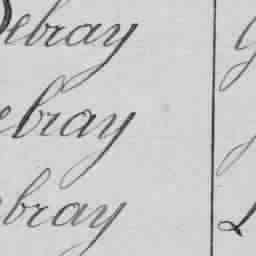 Debray
ebray
bray